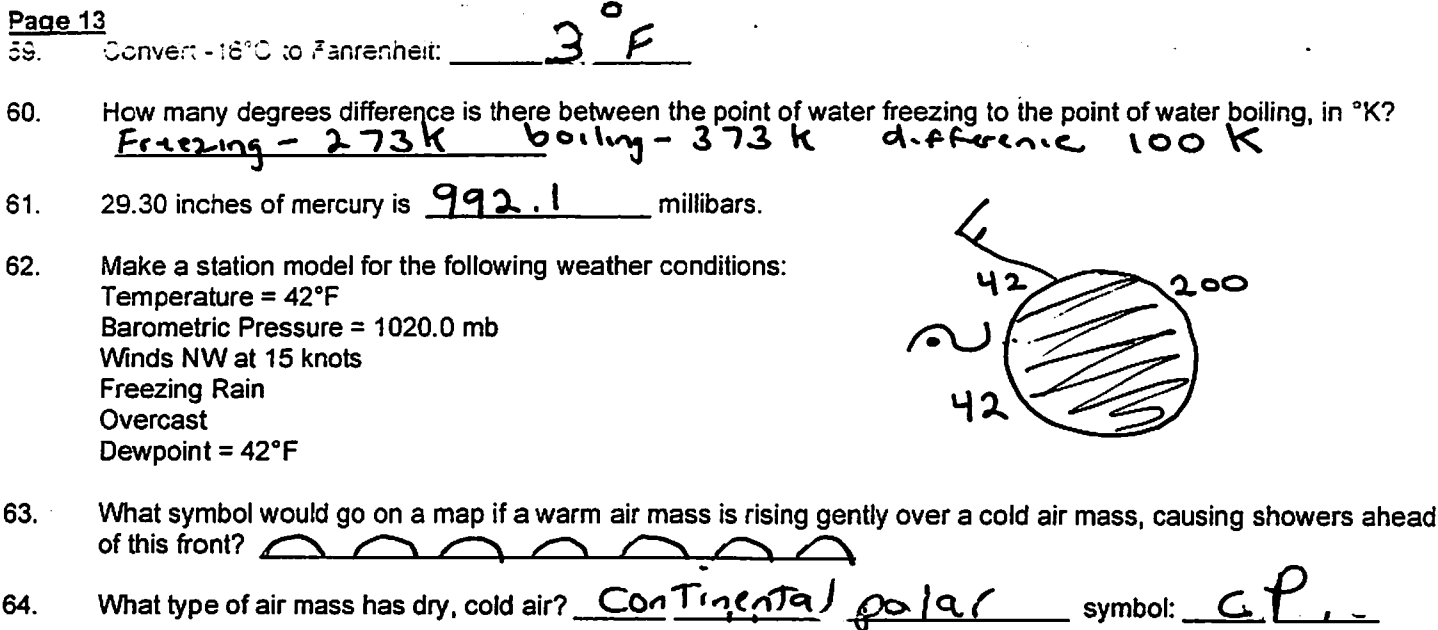 Page 13
59. Convert -16°C to Fahrenheit: 3 °F
60. How many degrees difference is there between the point of water freezing to the point of water boiling, in °K?
Freezing - 273K boiling - 373 K difference 100 K
61. 29.30 inches of mercury is 992.1 millibars.
62. Make a station model for the following weather conditions:
Temperature = 42°F
Barometric Pressure = 1020.0 mb
Winds NW at 15 knots
Freezing Rain
Overcast
Dewpoint = 42°F
42 200
42
63. What symbol would go on a map if a warm air mass is rising gently over a cold air mass, causing showers ahead
of this front?
64. What type of air mass has dry, cold air? Continental polar symbol: cP